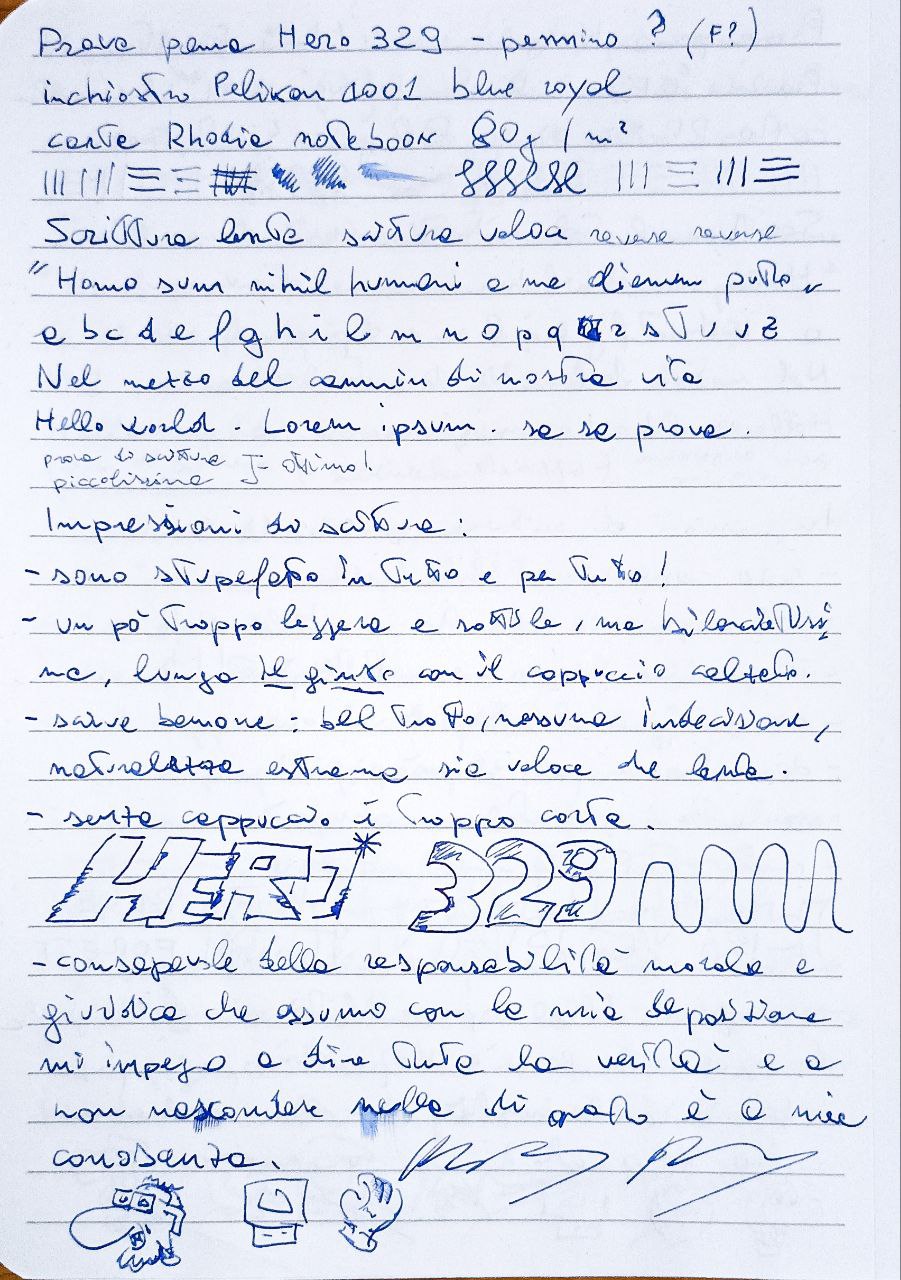 Prova penna Hero 329 - pennino ? (F?)
inchiostro Pelikan 4001 blue royal
carta Rhodia notebook 80g/m²
Scrittura lenta scrittura veloce reverse reverse
"Homo sum nihil humani a me alienum puto"
a b c d e f g h i l m n o p q r s t u v z
Nel mezzo del cammin di nostra vita
Hello world. Lorem ipsum. sa sa prova.
prova di scrittura
piccolissima } ottimo!
Impressioni di scrittura:
- sono stupefatto in tutto e per tutto!
- un pò troppo leggera e sottile, ma bilanciatissi
ma, lunga il giusto con il cappuccio calzato.
- scrive benone: bel tratto, nessuna indecisione,
naturalezza estrema sia veloce che lenta.
- senza cappuccio è troppo corta.
HERO 329
- consapevole della responsabilità morale e
giuridica che assumo con la mia deposizione
mi impegno a dire tutta la verità e a
non nascondere nulla di quanto è a mia
conoscenza.